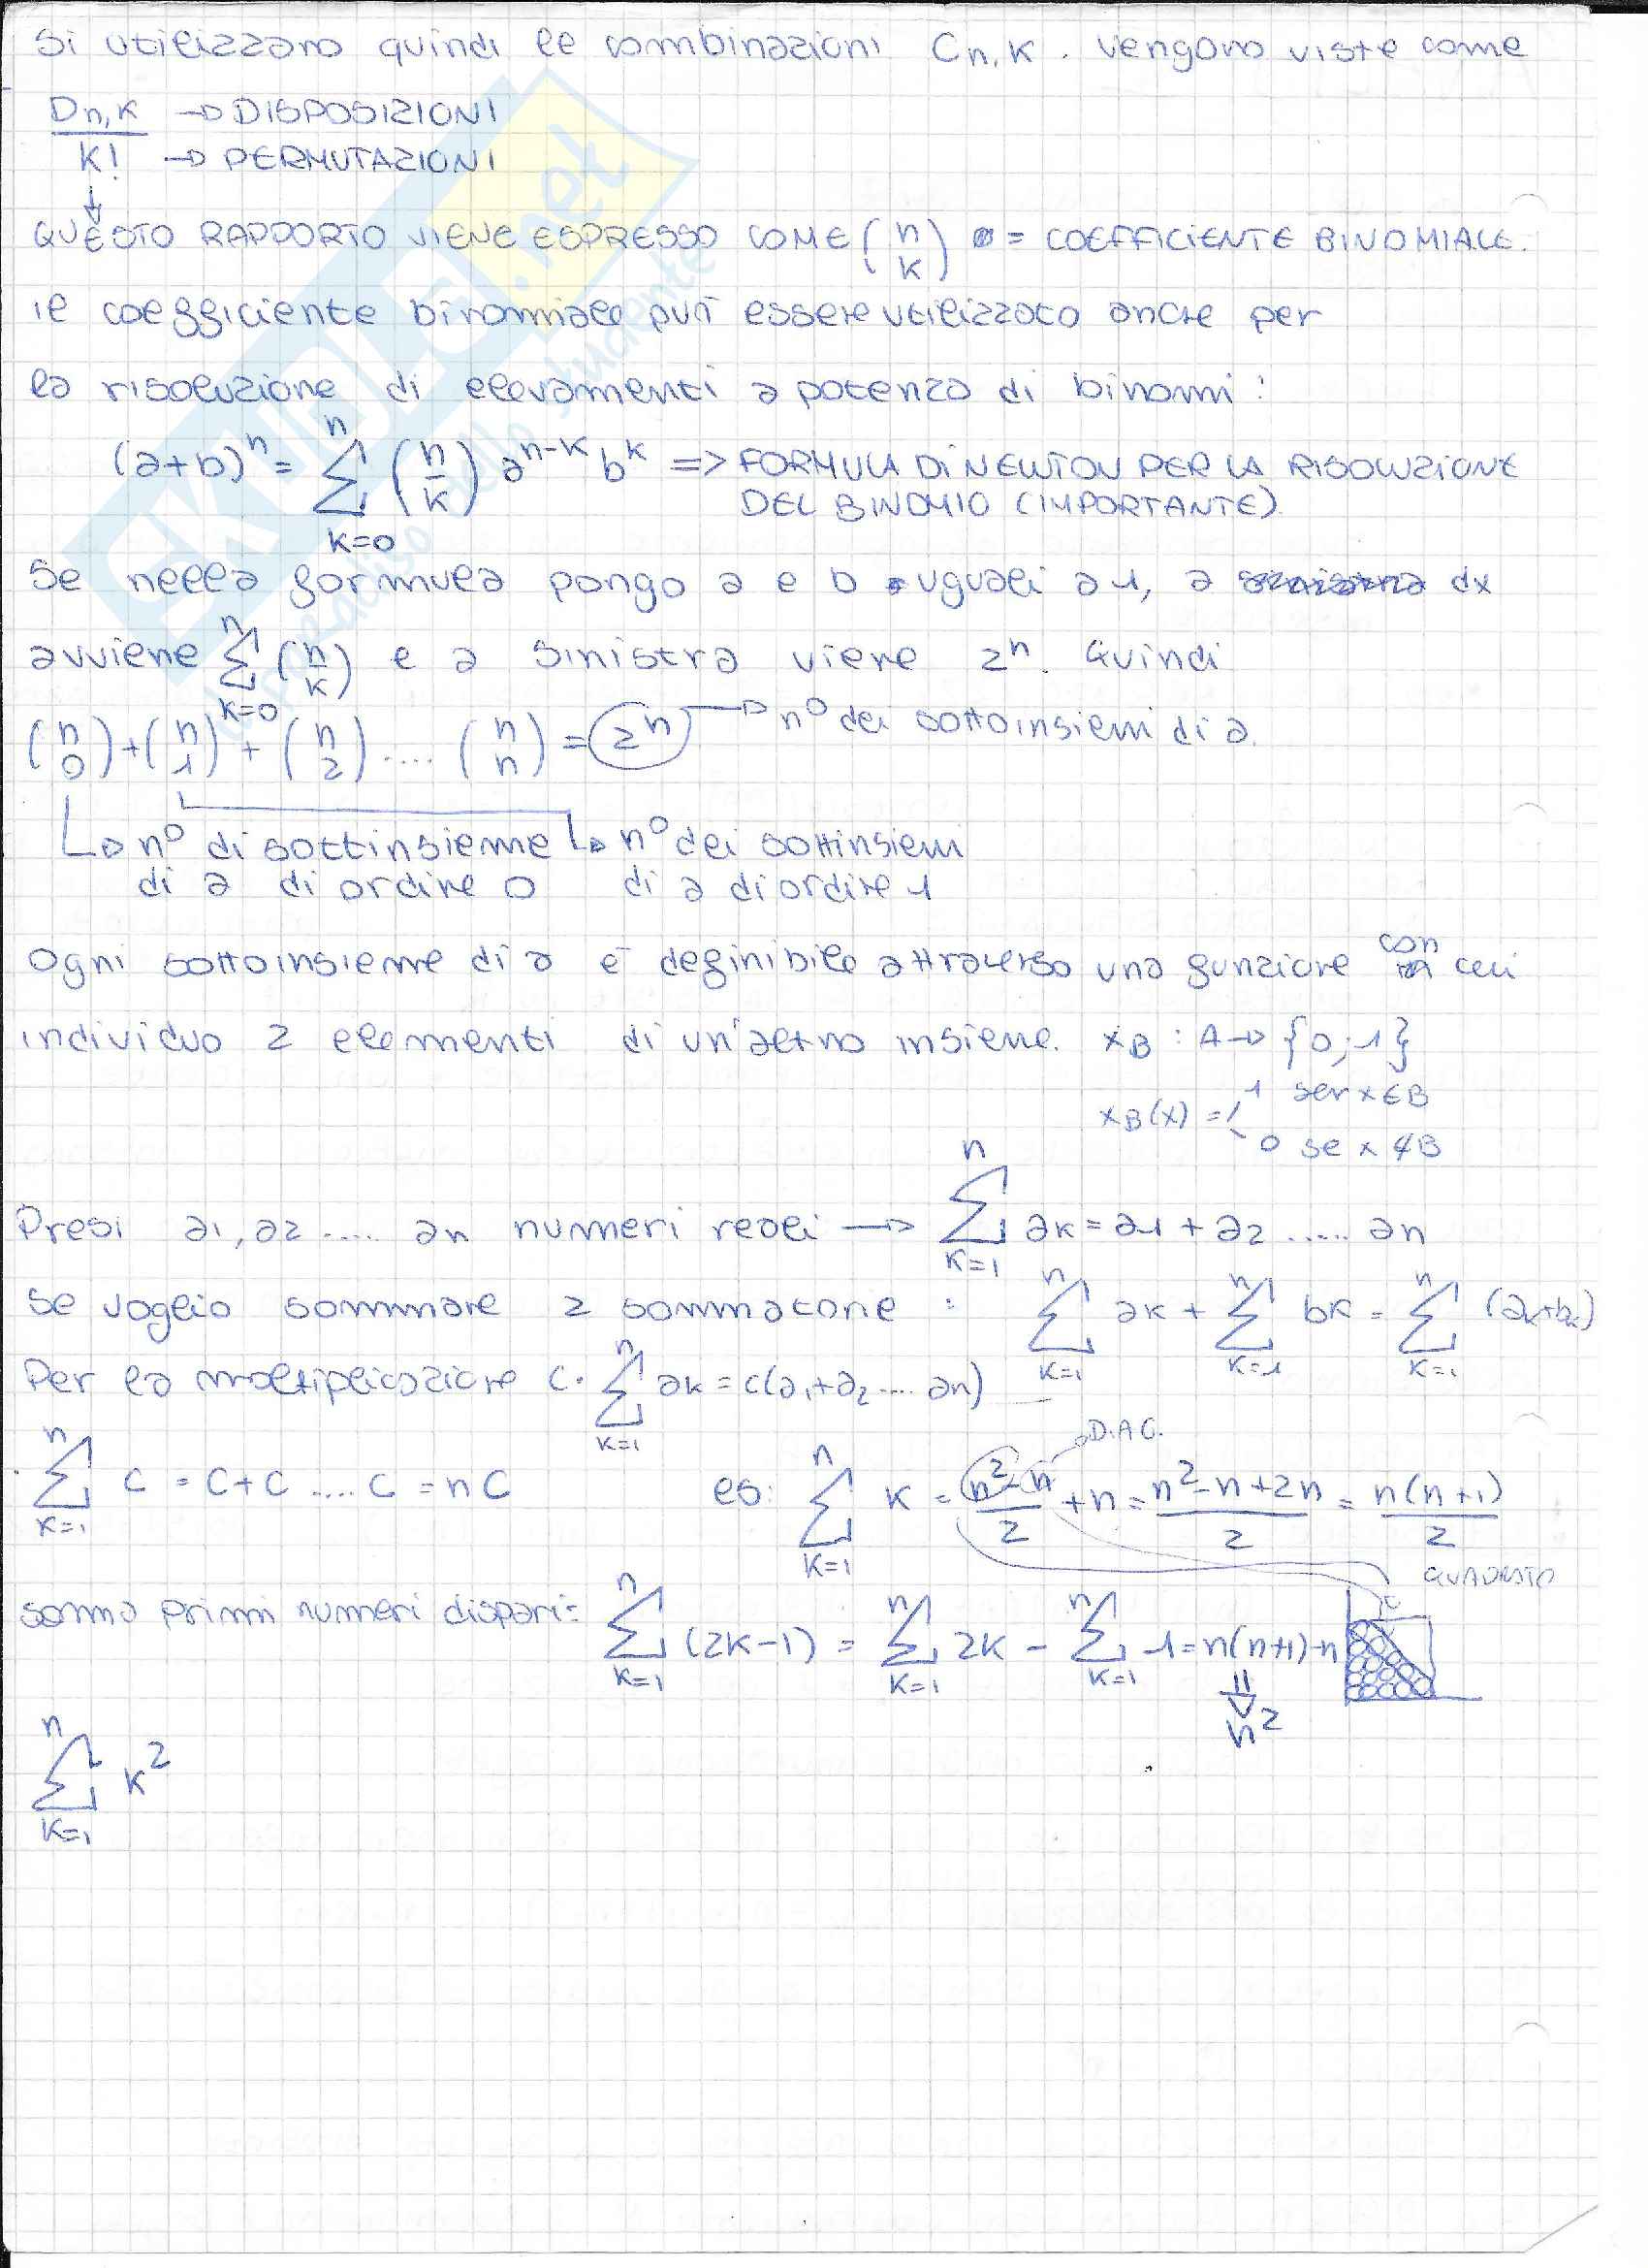 Si utilizzano quindi le combinazioni Cn,k. Vengono viste come
Dn,k → DISPOSIZIONI
K! → PERMUTAZIONI
↓
QUESTO RAPPORTO VIENE ESPRESSO COME (n k) = COEFFICIENTE BINOMIALE.
il coefficiente binomiale può essere utilizzato anche per
la risoluzione di elevamenti a potenza di binomi:
(a+b)^n = Σ_{k=0}^{n} (n/k) a^{n-k} b^k => FORMULA DI NEWTON PER LA RISOLUZIONE
DEL BINOMIO (IMPORTANTE)
Se nella formula pongo a e b uguali a 1, a dx
avviene Σ_{k=0}^{n} (n/k) e a sinistra viene 2^n. Quindi
(n 0) + (n 1) + (n 2) .... (n n) = 2^n → n° dei sottoinsiemi di a.
→ n° di sottinsieme → n° dei sottinsiemi
di a di ordine 0 di a di ordine 1
Ogni sottoinsieme di a è definibile attraverso una funzione con cui
individuo 2 elementi di un'altro insieme. xB : A → {0;1}
xB(x) = 1 ser x ∈ B
0 se x ∉ B
Presi a1, a2 .... an numeri reali → Σ_{k=1}^{n} ak = a1 + a2 ..... an
Se voglio sommare 2 sommatorie : Σ_{k=1}^{n} ak + Σ_{k=1}^{n} bk = Σ_{k=1}^{n} (ak+bk)
Per la moltiplicazione c· Σ_{k=1}^{n} ak = c(a1+a2 .... an)
D.AG.
Σ_{k=1}^{n} C = C+C .... C = nC es: Σ_{k=1}^{n} K = (n²-n)/2 + n = (n²-n+2n)/2 = n(n+1)/2
QUADRATO
somma primi numeri dispari: Σ_{k=1}^{n} (2k-1) = Σ_{k=1}^{n} 2k - Σ_{k=1}^{n} 1 = n(n+1)-n
⇓
n²
Σ_{k=1}^{n} k²